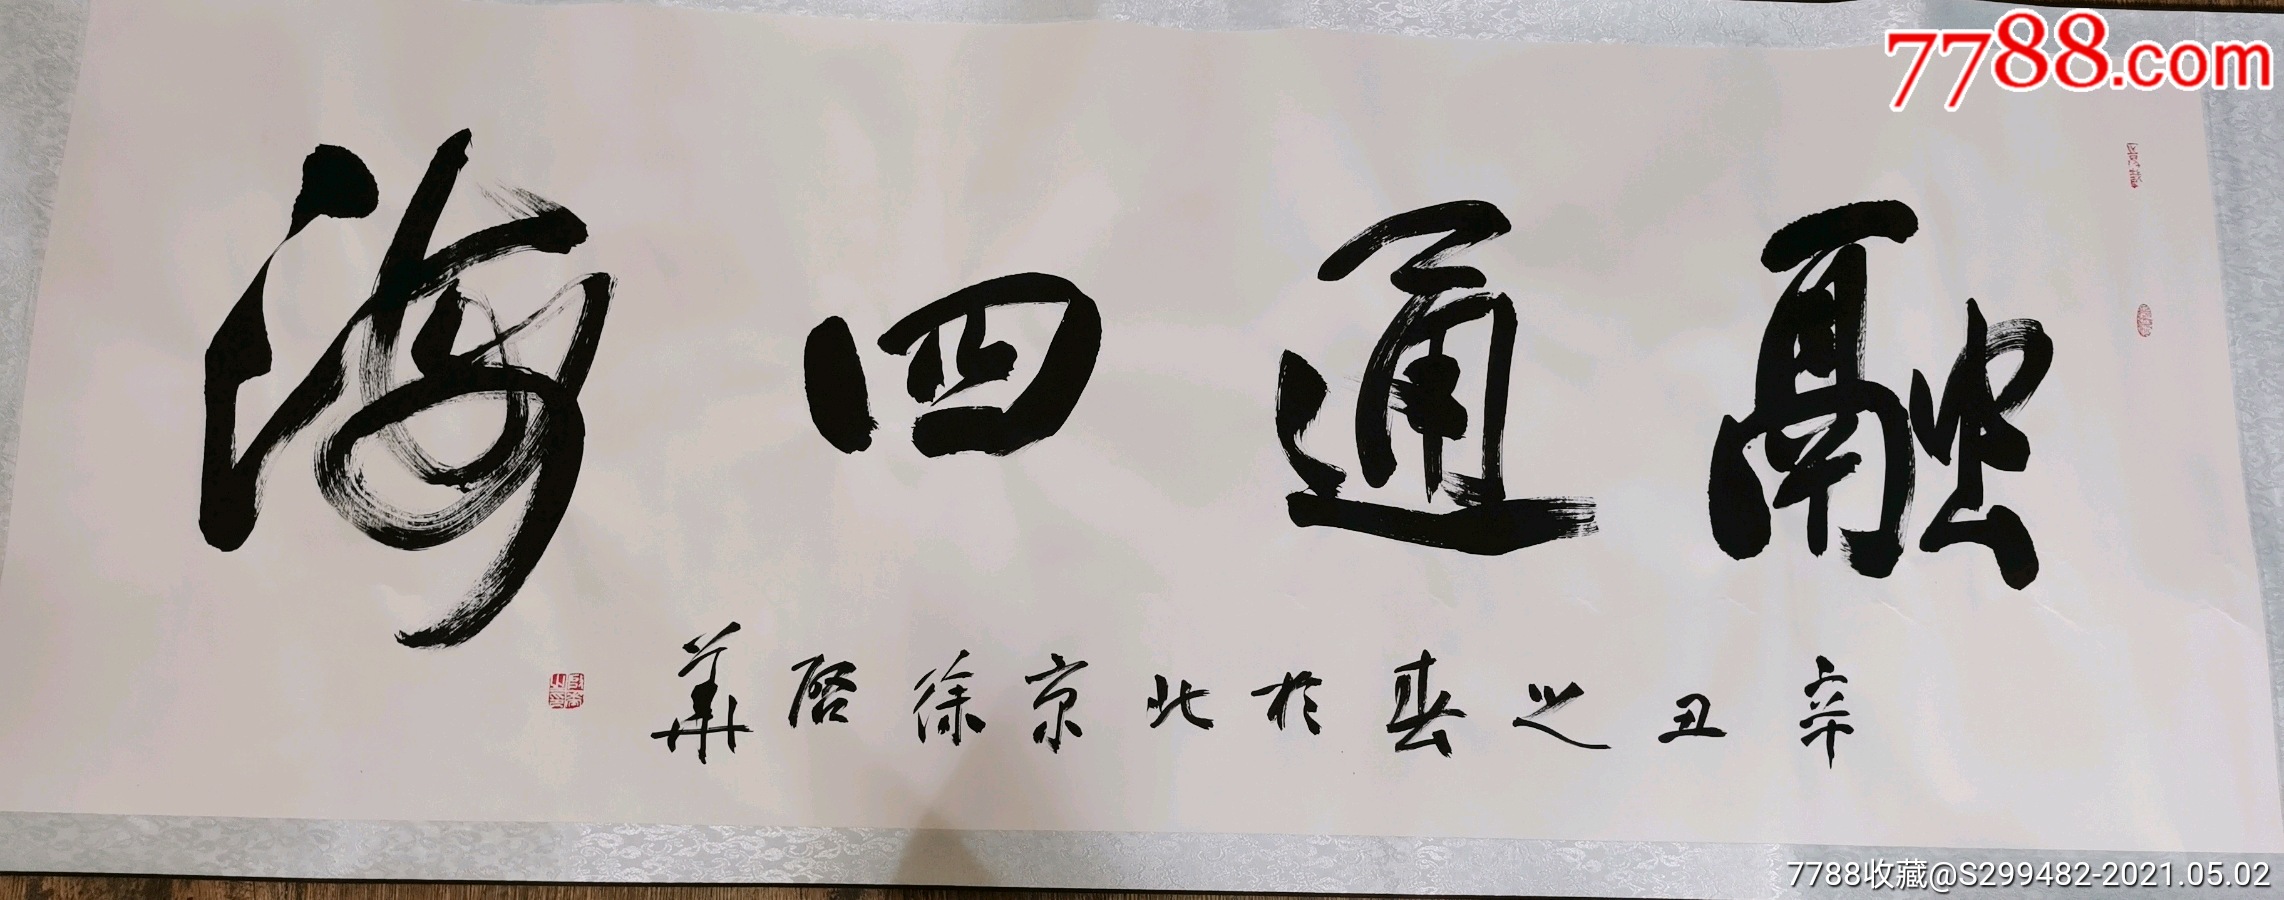 7788.com
融通四海
辛丑之春於北京徐啓華
7788收藏@S299482-2021.05.02